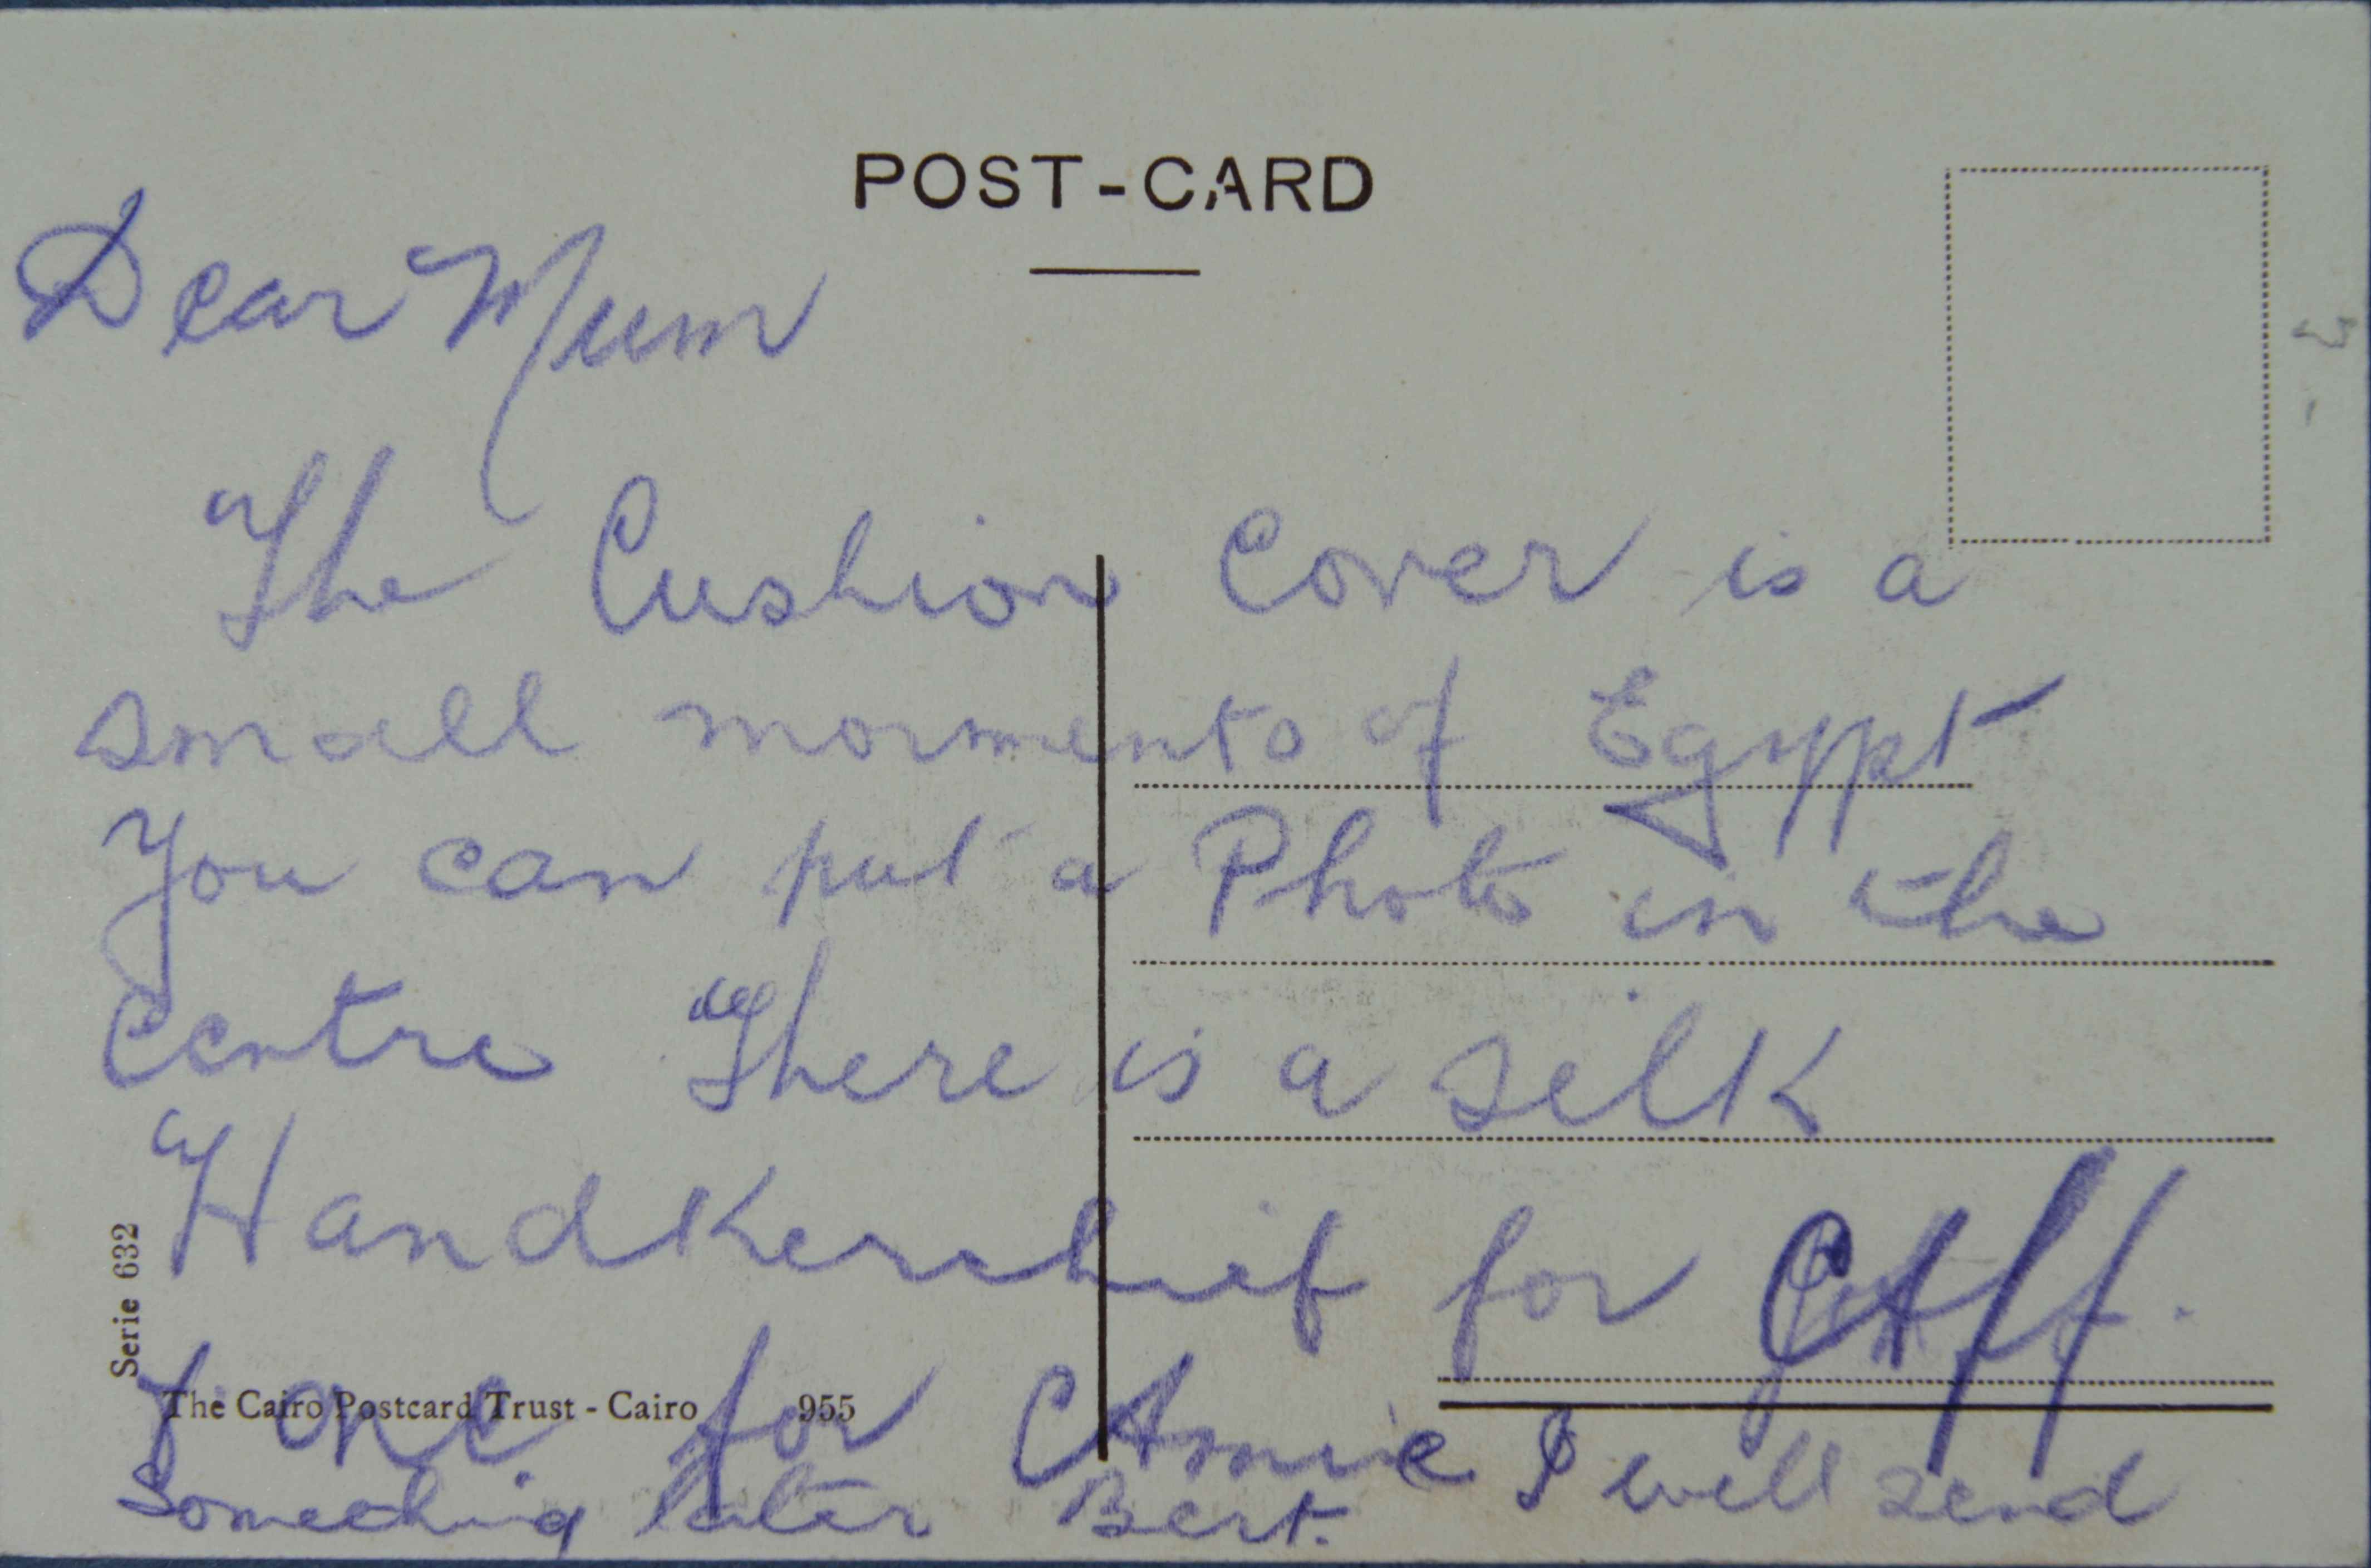 POST-CARD
Dear Mum
The Cushion Cover is a
small momento of Egypt
You can put a Photo in the
Centre There is a silk
Handkerchief for Alf.
& one for Amie I will send
Something later Bert.
Serie 632
The Cairo Postcard Trust - Cairo 955